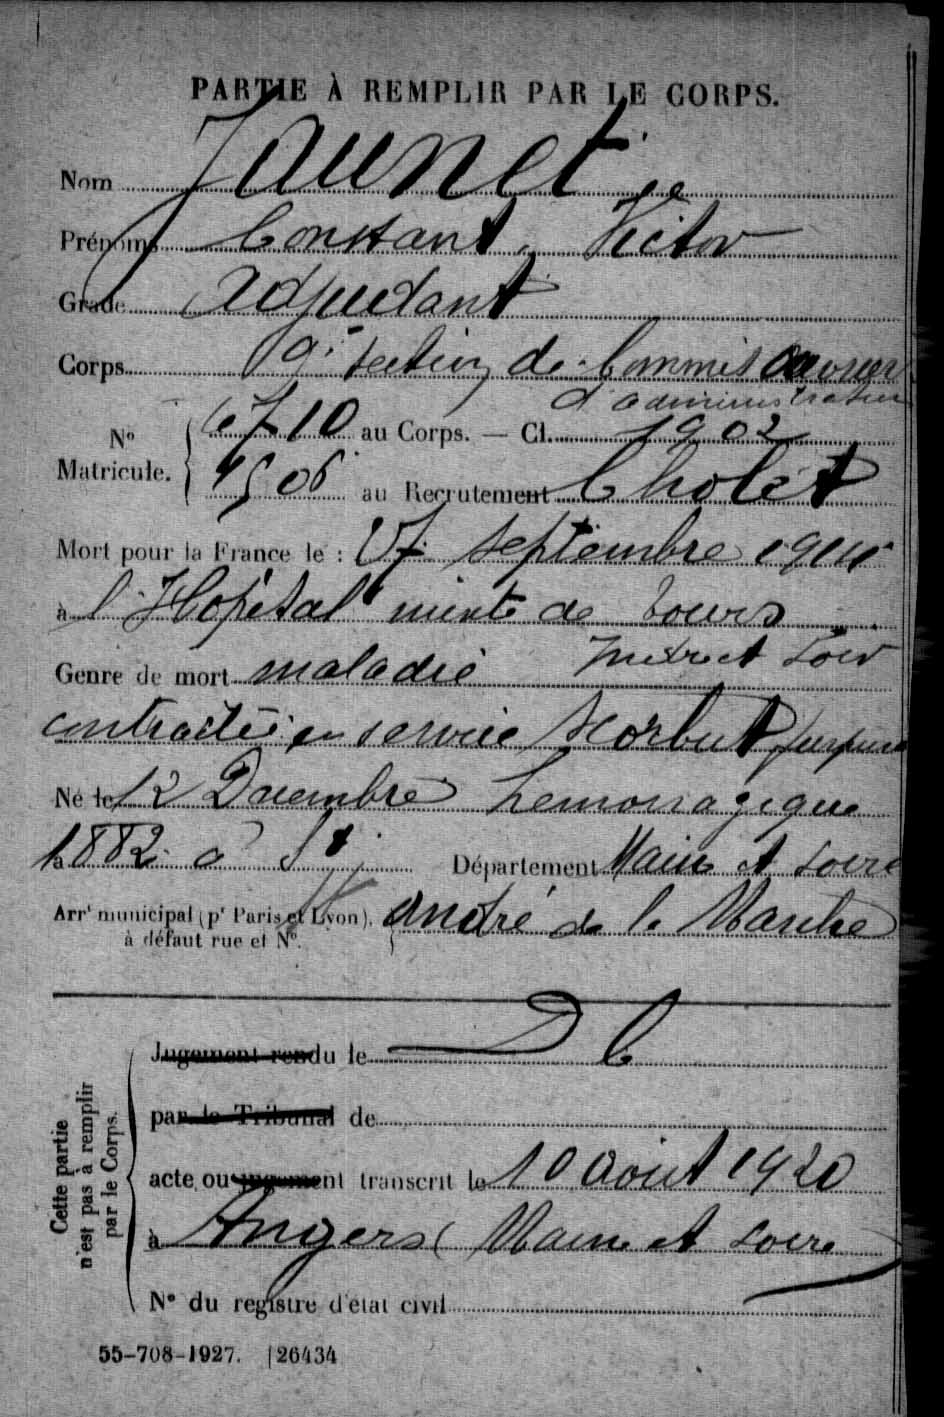 PARTIE À REMPLIR PAR LE CORPS.
Nom Jaunet
Prénoms Constant, Victor
Grade Adjudant
Corps 9e section de Commis ouvrier
d'administration
Nº Matricule. { 6710 au Corps. — Cl. 1902
1506 au Recrutement Cholet
Mort pour la France le : 17 septembre 1914
à l'Hopital mixte de Tours
Indre et Loir
Genre de mort maladie
contractée en service scorbut purpura
Né le 12 Décembre hemorragique
à 1882 à St Département Maine et Loire
Arrt municipal (pr Paris et Lyon), André de la Marche
à défaut rue et Nº.
Jugement rendu le D C
par le Tribunal de
acte ou jugement transcrit le 10 août 1920
à Angers (Maine et Loire
Nº du registre d'état civil
Cette partie
n'est pas à remplir
par le Corps.
55-708-1927. [26434